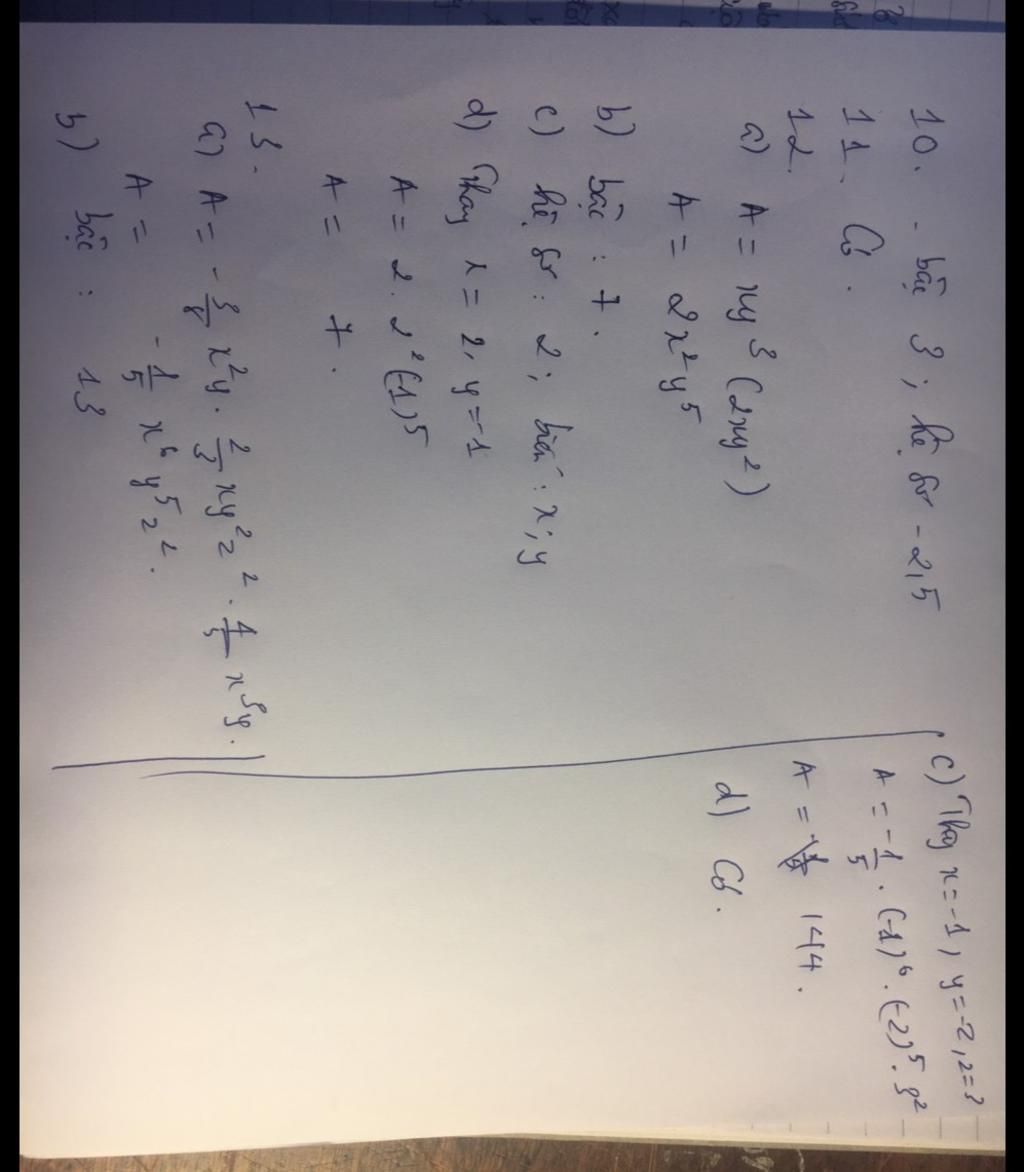 10. - bậc 3 ; hệ số -2,5
11. Có.
12.
a) A = xy³ (2xy²)
A = 2x²y⁵
b) bậc : 7.
c) hệ số : 2 ; biến : x ; y
d) Thay x = 2, y = -1
A = 2 . 2² (-1)⁵
A = 7.
13.
a) A = -3/8 x²y . 2/3 xy²z² . 4/5 x³y.
A = -1/5 x⁶ y⁵ z².
b) bậc : 13
c) Thay x = -1, y = -2, z = 3
A = -1/5 . (-1)⁶ . (-2)⁵ . 3²
A = 144.
d) Có.